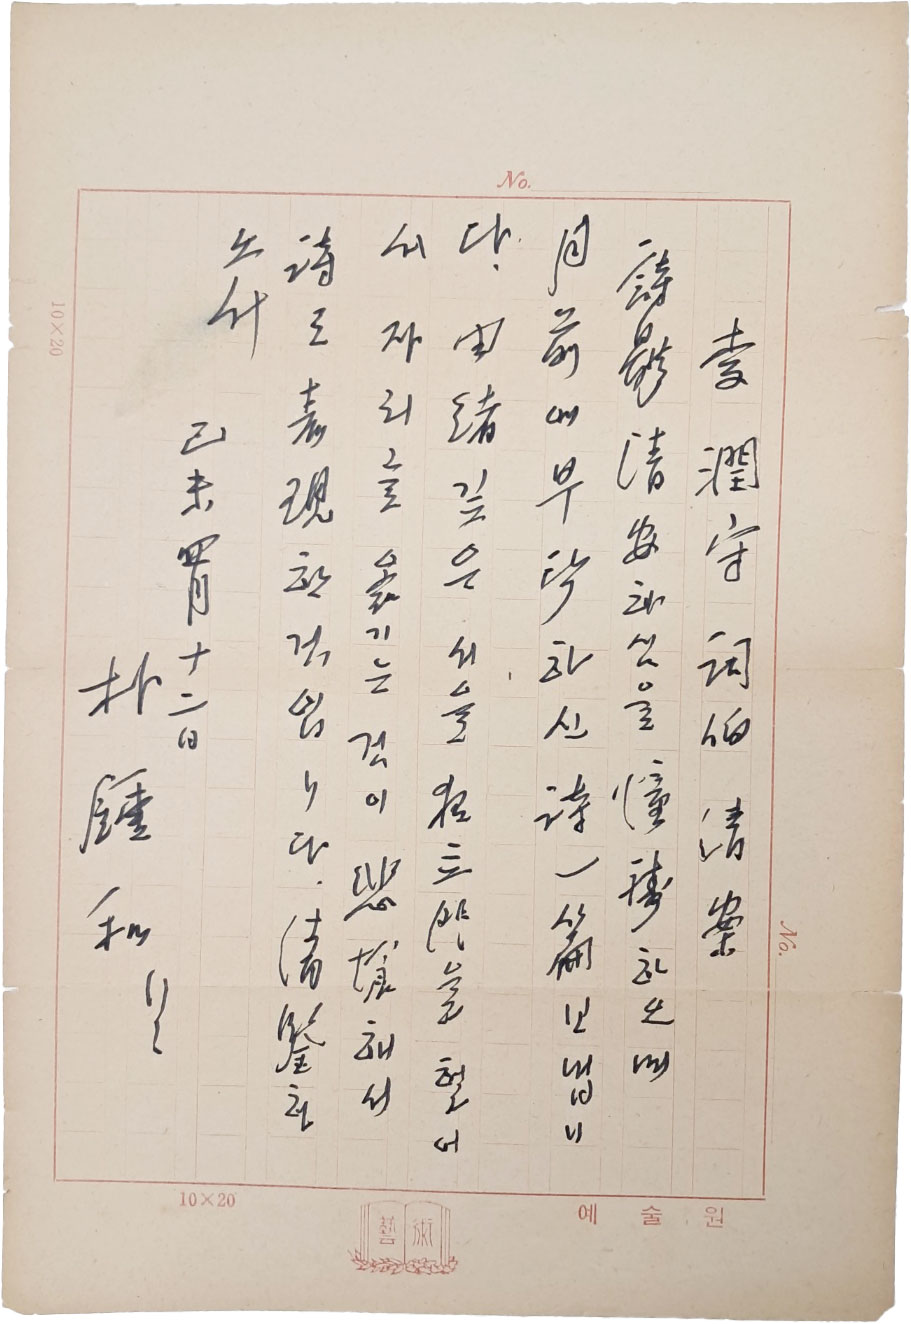 No.
李潤守詞伯 清案
清安하심을 憧禱하오며
月前에 부탁하신 詩一篇 보냅니
다. 由緖 깊은 서울 独立門을 헐어
서 자리를 옮기는 것이 悲愴해서
詩로 表現한 것입니다. 清鑒하
소서
己未 四月十二日
朴鍾和
10×20
No.
10×20
藝術
예술원